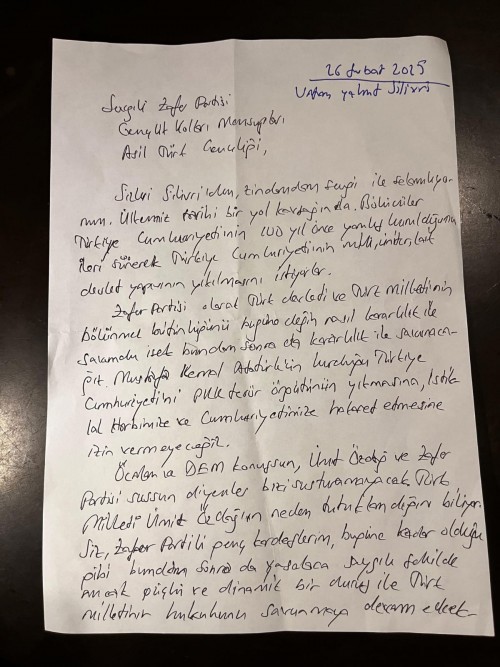 26 Şubat 2025
Vatan yahut Silivri
Sevgili Zafer Partisi
Gençlik Kolları Mensupları,
Asil Türk Gençliği,
Sizleri Silivri'den, zindandan sevgi ile selamlıyo-
rum. Ülkemiz tarihi bir yol kavşağında. Bölücüler
Türkiye Cumhuriyetinin 100 yıl önce yanlış kurulduğunu
ileri sürerek Türkiye Cumhuriyetinin milli, üniter, laik
devlet yapısının yıkılmasını istiyorlar.
Zafer Partisi olarak Türk devleti ve Türk Milletinin
bölünmez bütünlüğünü bugüne değin nasıl kararlılık ile
savunduk isek bundan sonra da kararlılık ile savunaca-
ğız. Mustafa Kemal Atatürk'ün kurduğu Türkiye
Cumhuriyetini PKK terör örgütünün yıkmasına, İstik-
lal Harbimize ve Cumhuriyetimize hakaret etmesine
izin vermeyeceğiz.
Öcalan ve DEM konuşsun, Ümit Özdağ ve Zafer
Partisi sussun diyenler bizi susturamayacak. Türk
Milleti Ümit Özdağ'ın neden tutuklandığını biliyor.
Siz, Zafer Partili genç kardeşlerim, bugüne kadar olduğu
gibi bundan sonra da yasalara saygılı şekilde
ancak güçlü ve dinamik bir duruş ile Türk
milletinin hukukunu savunmaya devam edecek-